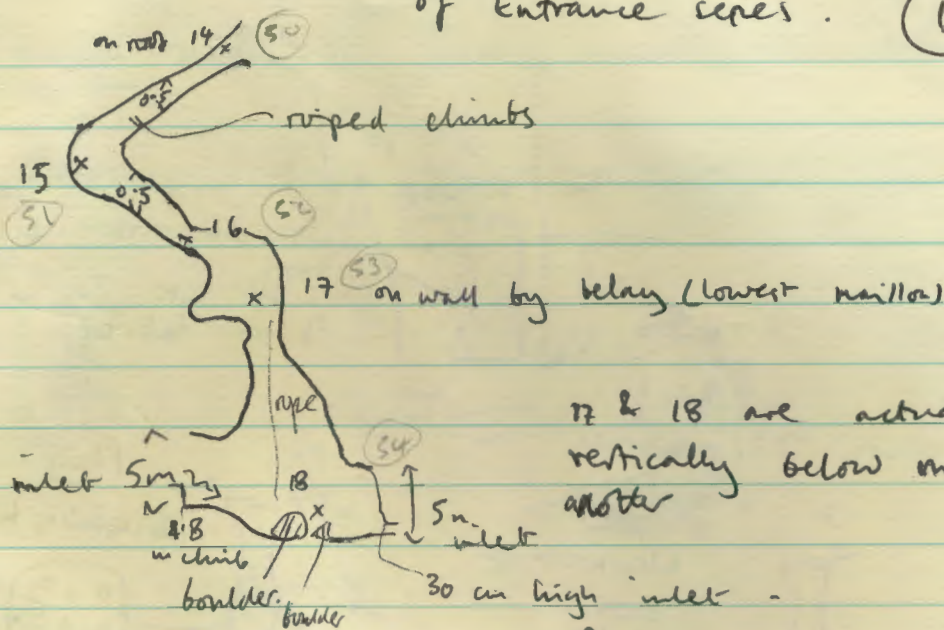 of Entrance series.
on roof 14 50
0.5
roped climbs
15
51
0.5
16 52
17 53 on wall by belay (lowest maillon)
rope
17 & 18 are
vertically below
another
54
inlet 5m
18
5m
inlet
m climb
boulder.
boulder
30 cm high inlet -